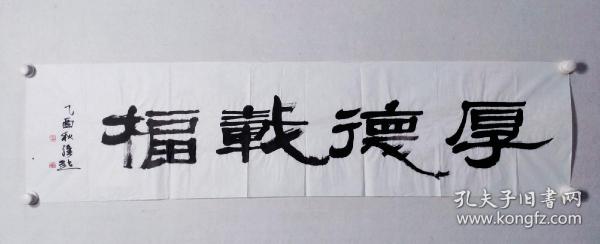 厚德載福
乙酉秋
孔夫子旧书网
www.kongfz.com